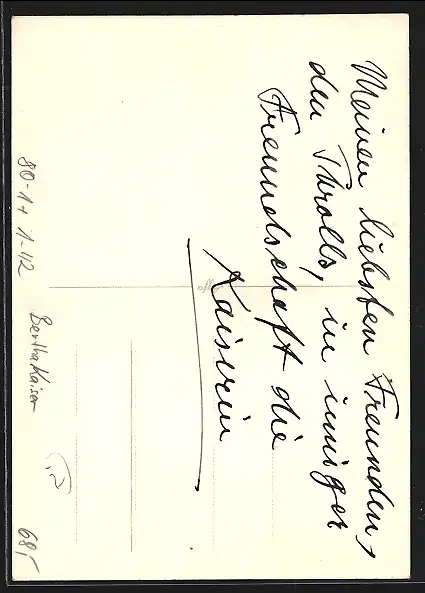 Meinen liebsten Freunden,
den Throlls, in inniger
Freundschaft die
Kaiserin
80-1+ 1-42
Bertha Kaiser
68,-